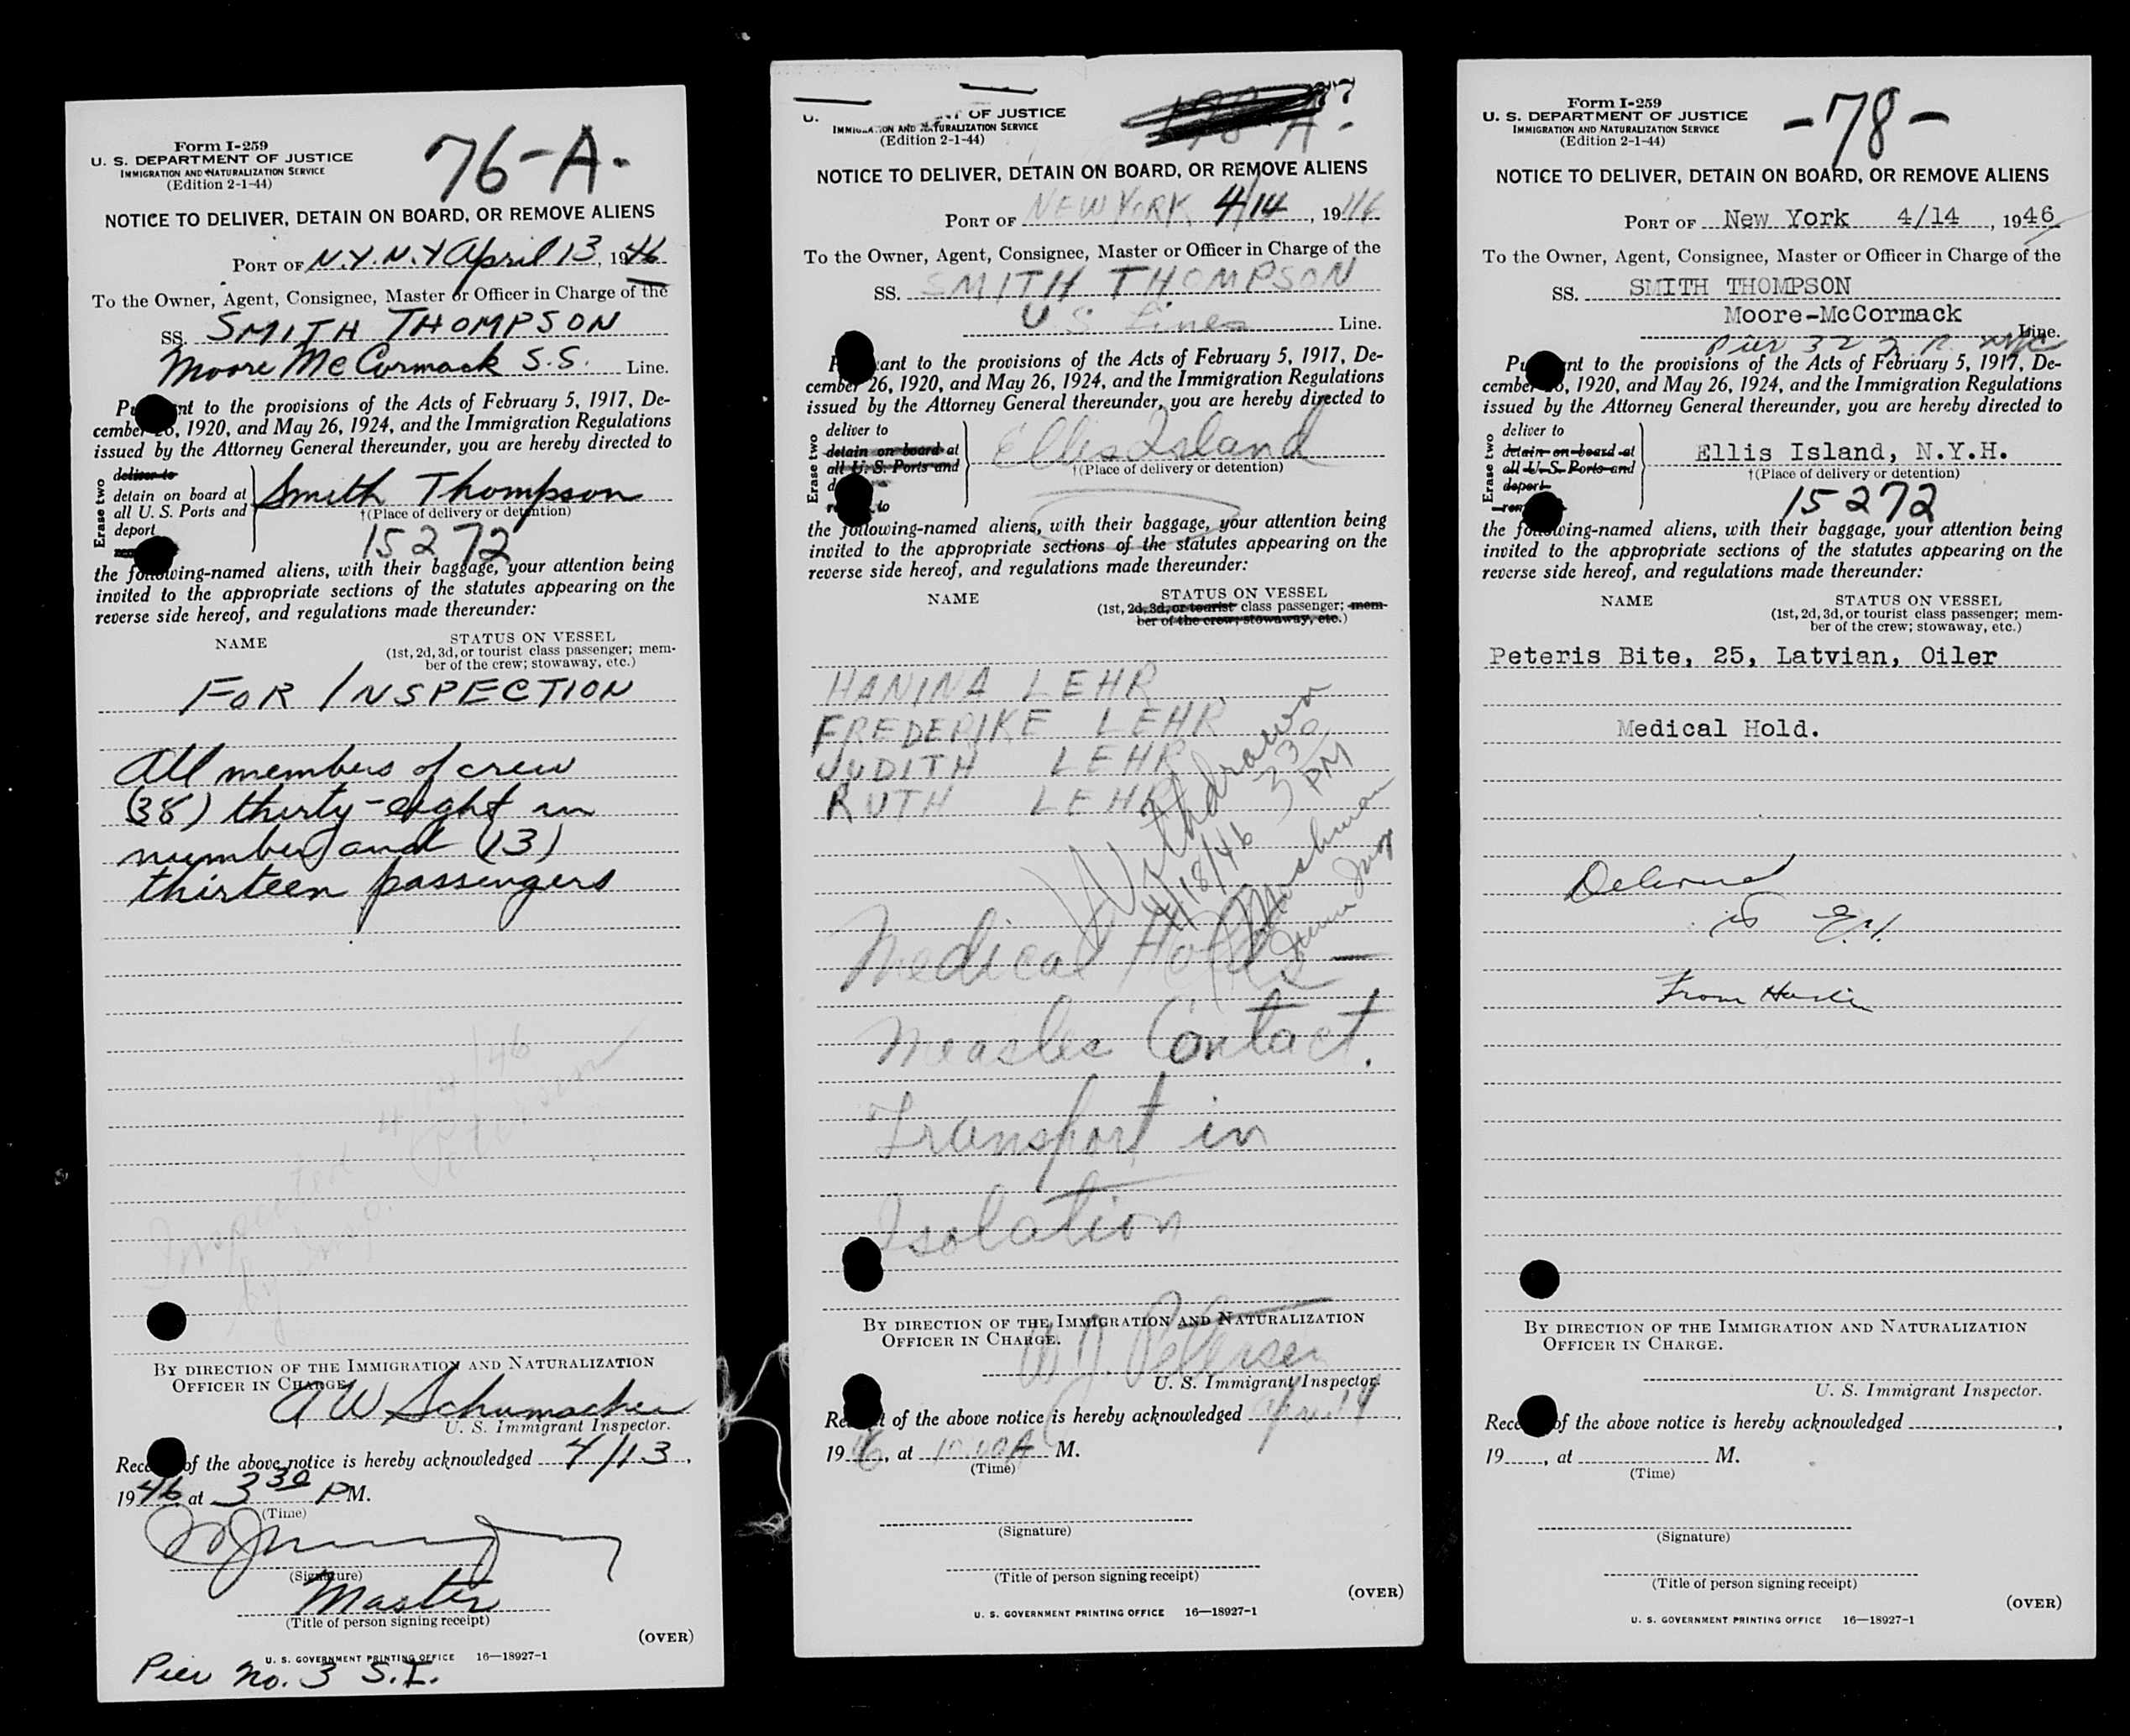 Form I-259
U. S. DEPARTMENT OF JUSTICE
IMMIGRATION AND NATURALIZATION SERVICE
(Edition 2-1-44)
76-A-
NOTICE TO DELIVER, DETAIN ON BOARD, OR REMOVE ALIENS
PORT OF N.Y.N.Y April 13, 1946
To the Owner, Agent, Consignee, Master or Officer in Charge of the
SS. SMITH THOMPSON
Moore McCormack S.S. Line.
to the provisions of the Acts of February 5, 1917, De-
cember 26, 1920, and May 26, 1924, and the Immigration Regulations
issued by the Attorney General thereunder, you are hereby directed to
Erase two
deliver to
detain on board at
all U. S. Ports and
deport
Smith Thompson
†(Place of delivery or detention)
15272
the following-named aliens, with their baggage, your attention being
invited to the appropriate sections of the statutes appearing on the
reverse side hereof, and regulations made thereunder:
NAME
STATUS ON VESSEL
(1st, 2d, 3d, or tourist class passenger; mem-
ber of the crew; stowaway, etc.)
FOR INSPECTION
All members of crew
(38) thirty-eight in
number and (13)
thirteen passengers
Inspected 4/14/46
by Insp. Petersen
BY DIRECTION OF THE IMMIGRATION AND NATURALIZATION
OFFICER IN CHARGE.
A W Schumacher
U. S. Immigrant Inspector.
of the above notice is hereby acknowledged 4/13,
1946 at 3 30 P M.
(Time)
(Signature)
Master
(Title of person signing receipt)
(OVER)
U. S. GOVERNMENT PRINTING OFFICE 16—18927-1
Pier No. 3 S.I.
U. OF JUSTICE
IMMIGRATION AND NATURALIZATION SERVICE
(Edition 2-1-44)
77
A-
NOTICE TO DELIVER, DETAIN ON BOARD, OR REMOVE ALIENS
PORT OF NEW YORK, 4/14, 1946
To the Owner, Agent, Consignee, Master or Officer in Charge of the
SS. SMITH THOMPSON
U S Lines Line.
to the provisions of the Acts of February 5, 1917, De-
cember 26, 1920, and May 26, 1924, and the Immigration Regulations
issued by the Attorney General thereunder, you are hereby directed to
Erase two
deliver to
detain on board at
all U. S. Ports and
to
Ellis Island
†(Place of delivery or detention)
the following-named aliens, with their baggage, your attention being
invited to the appropriate sections of the statutes appearing on the
reverse side hereof, and regulations made thereunder:
NAME
STATUS ON VESSEL
(1st, 2d, 3d, or tourist class passenger; mem-
ber of the crew; stowaway, etc.)
HANINA LEHR
FREDERIKE LEHR
JUDITH LEHR
RUTH LEHR
Withdrawn
4/18/46 3 30 PM
Medical Holds —
Measles Contact.
Transport in
Isolation
BY DIRECTION OF THE IMMIGRATION AND NATURALIZATION
OFFICER IN CHARGE.
W J Petersen
U. S. Immigrant Inspector.
of the above notice is hereby acknowledged April 14,
1946, at 10.00 A M.
(Time)
(Signature)
(Title of person signing receipt)
(OVER)
U. S. GOVERNMENT PRINTING OFFICE 16—18927-1
Form I-259
U. S. DEPARTMENT OF JUSTICE
IMMIGRATION AND NATURALIZATION SERVICE
(Edition 2-1-44)
-78-
NOTICE TO DELIVER, DETAIN ON BOARD, OR REMOVE ALIENS
PORT OF New York 4/14, 1946
To the Owner, Agent, Consignee, Master or Officer in Charge of the
SS. SMITH THOMPSON
Moore-McCormack
Line.
Pier 32 N.R. NYC
to the provisions of the Acts of February 5, 1917, De-
cember 26, 1920, and May 26, 1924, and the Immigration Regulations
issued by the Attorney General thereunder, you are hereby directed to
Erase two
deliver to
detain on board at
all U. S. Ports and
deport
Ellis Island, N.Y.H.
†(Place of delivery or detention)
15272
the following-named aliens, with their baggage, your attention being
invited to the appropriate sections of the statutes appearing on the
reverse side hereof, and regulations made thereunder:
NAME
STATUS ON VESSEL
(1st, 2d, 3d, or tourist class passenger; mem-
ber of the crew; stowaway, etc.)
Peteris Bite, 25, Latvian, Oiler
Medical Hold.
Delivered
to E.I.
From
BY DIRECTION OF THE IMMIGRATION AND NATURALIZATION
OFFICER IN CHARGE.
U. S. Immigrant Inspector.
of the above notice is hereby acknowledged ,
19 , at M.
(Time)
(Signature)
(Title of person signing receipt)
(OVER)
U. S. GOVERNMENT PRINTING OFFICE 16—18927-1